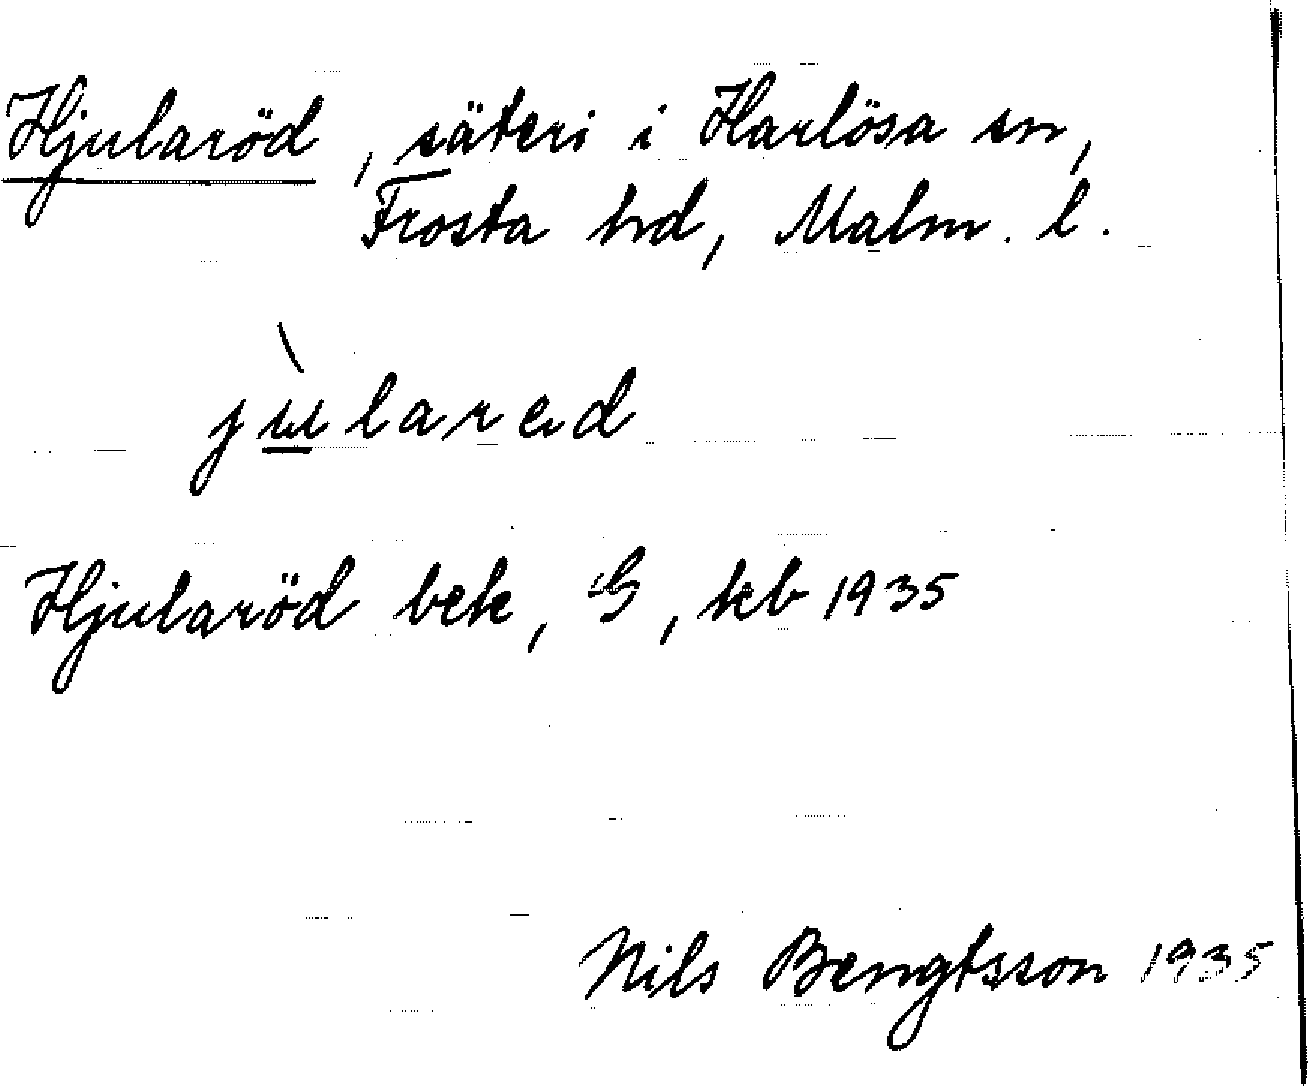 Hjularöd, säteri i Harlösa sn,
Frosta hd, Malm. l.
jùlared
Hjularöd bek, G, kb 1935
Nils Bengtsson 1935